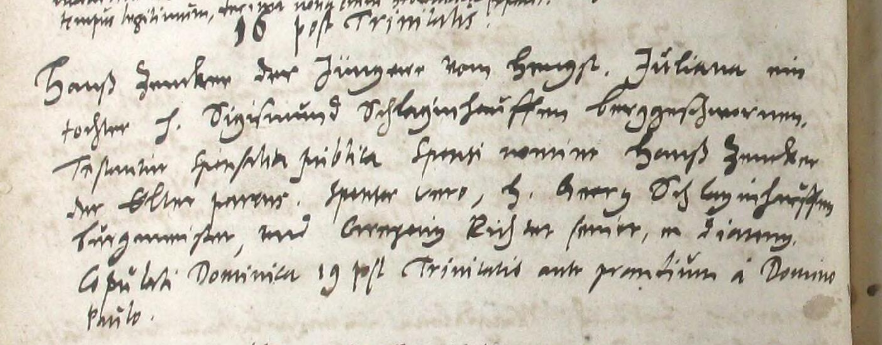 tempus legitimum,
16 post Trinitatis.
Hanß Zencker der Jüngere vom Hengst. Juliana ein
tochter H. Sigismund Schlaginhauffen berggeschwornen.
Testantur sponsalia publica sponsi nomine Hanß Zencker
der Elter parens. sponsae vero, H. Georg Schlaginhauffen
burgmeister, und Gregorius Richter senior,
Copulati Dominica 19 post Trinitatis ante prandium à Domino
Paulo.